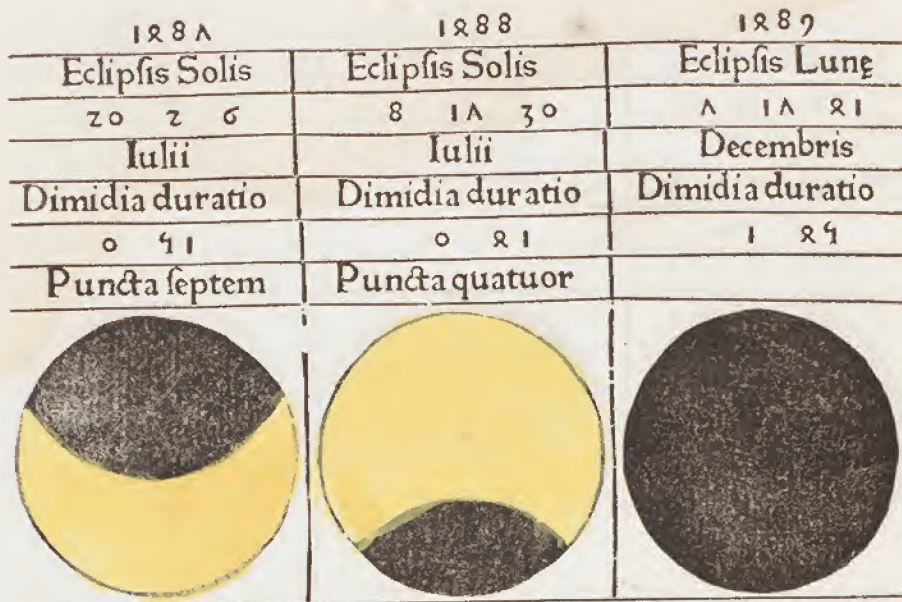 1487 1488 1489
Eclipſis Solis Eclipſis Solis Eclipſis Lunę
20 2 6 8 17 30 7 17 41
Iulii Iulii Decembris
Dimidia duratio Dimidia duratio Dimidia duratio
0 51 0 41 1 45
Puncta ſeptem Puncta quatuor